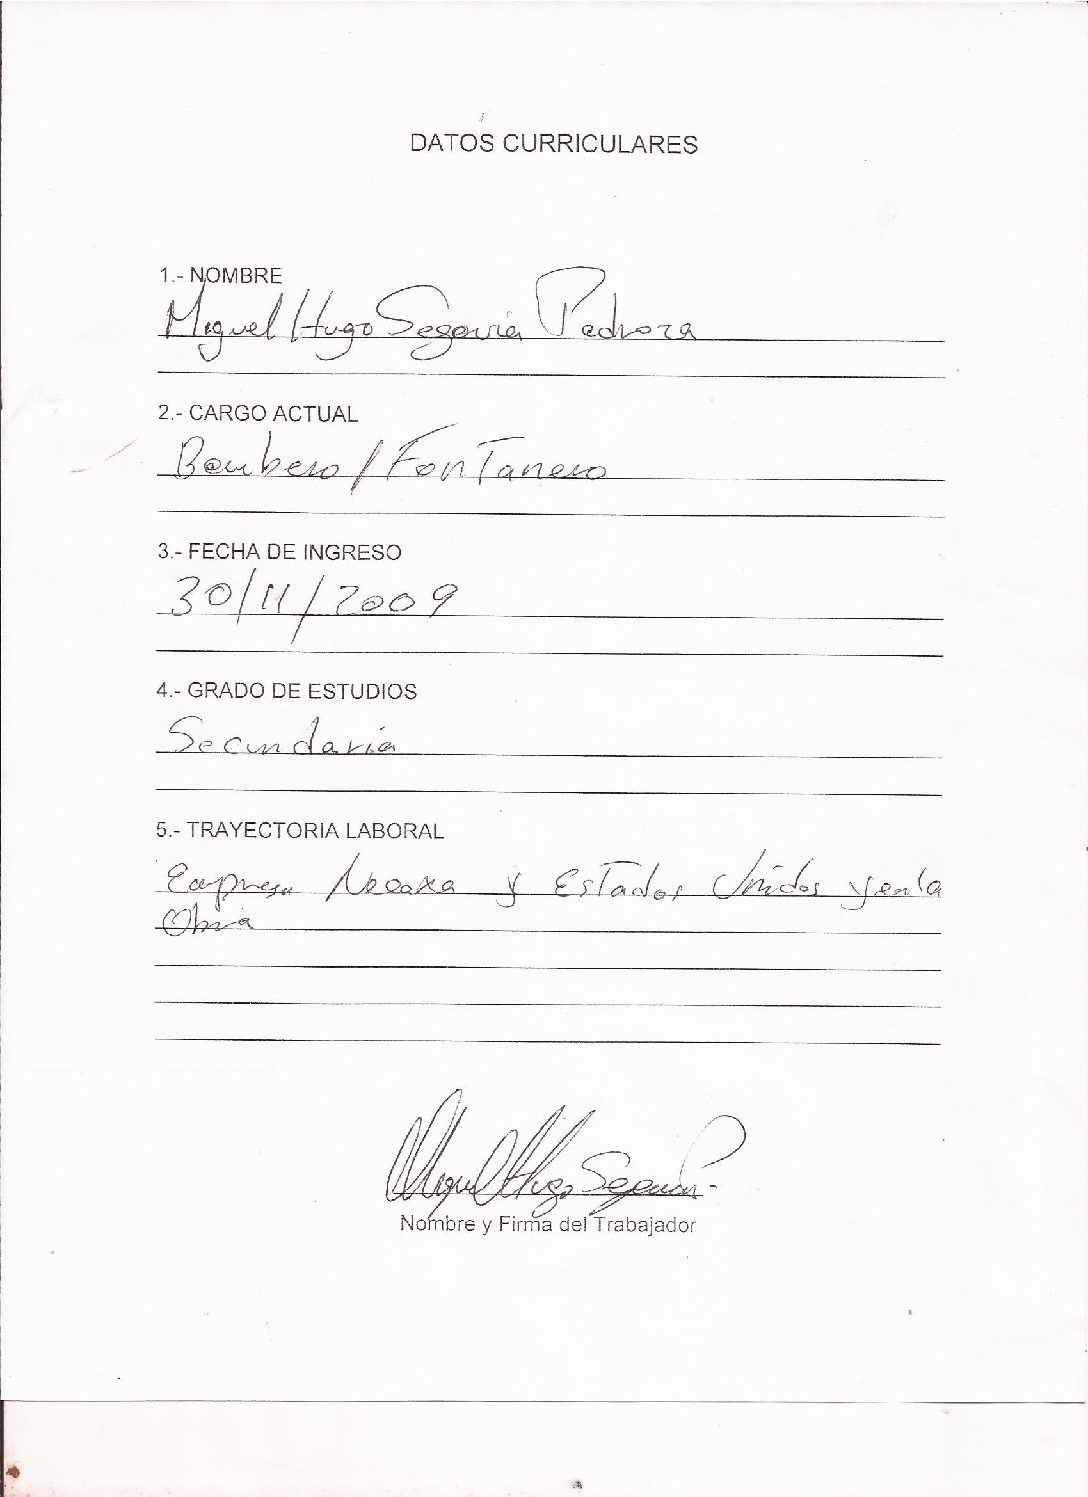 DATOS CURRICULARES
1.- NOMBRE
Miguel Hugo Segovia Pedroza
2.- CARGO ACTUAL
Bombero / Fontanero
3.- FECHA DE INGRESO
30/11/2009
4.- GRADO DE ESTUDIOS
Secundaria
5.- TRAYECTORIA LABORAL
Empresa Necaxa y Estados Unidos y en la
Obra
Miguel Hugo Segovia P.
Nombre y Firma del Trabajador